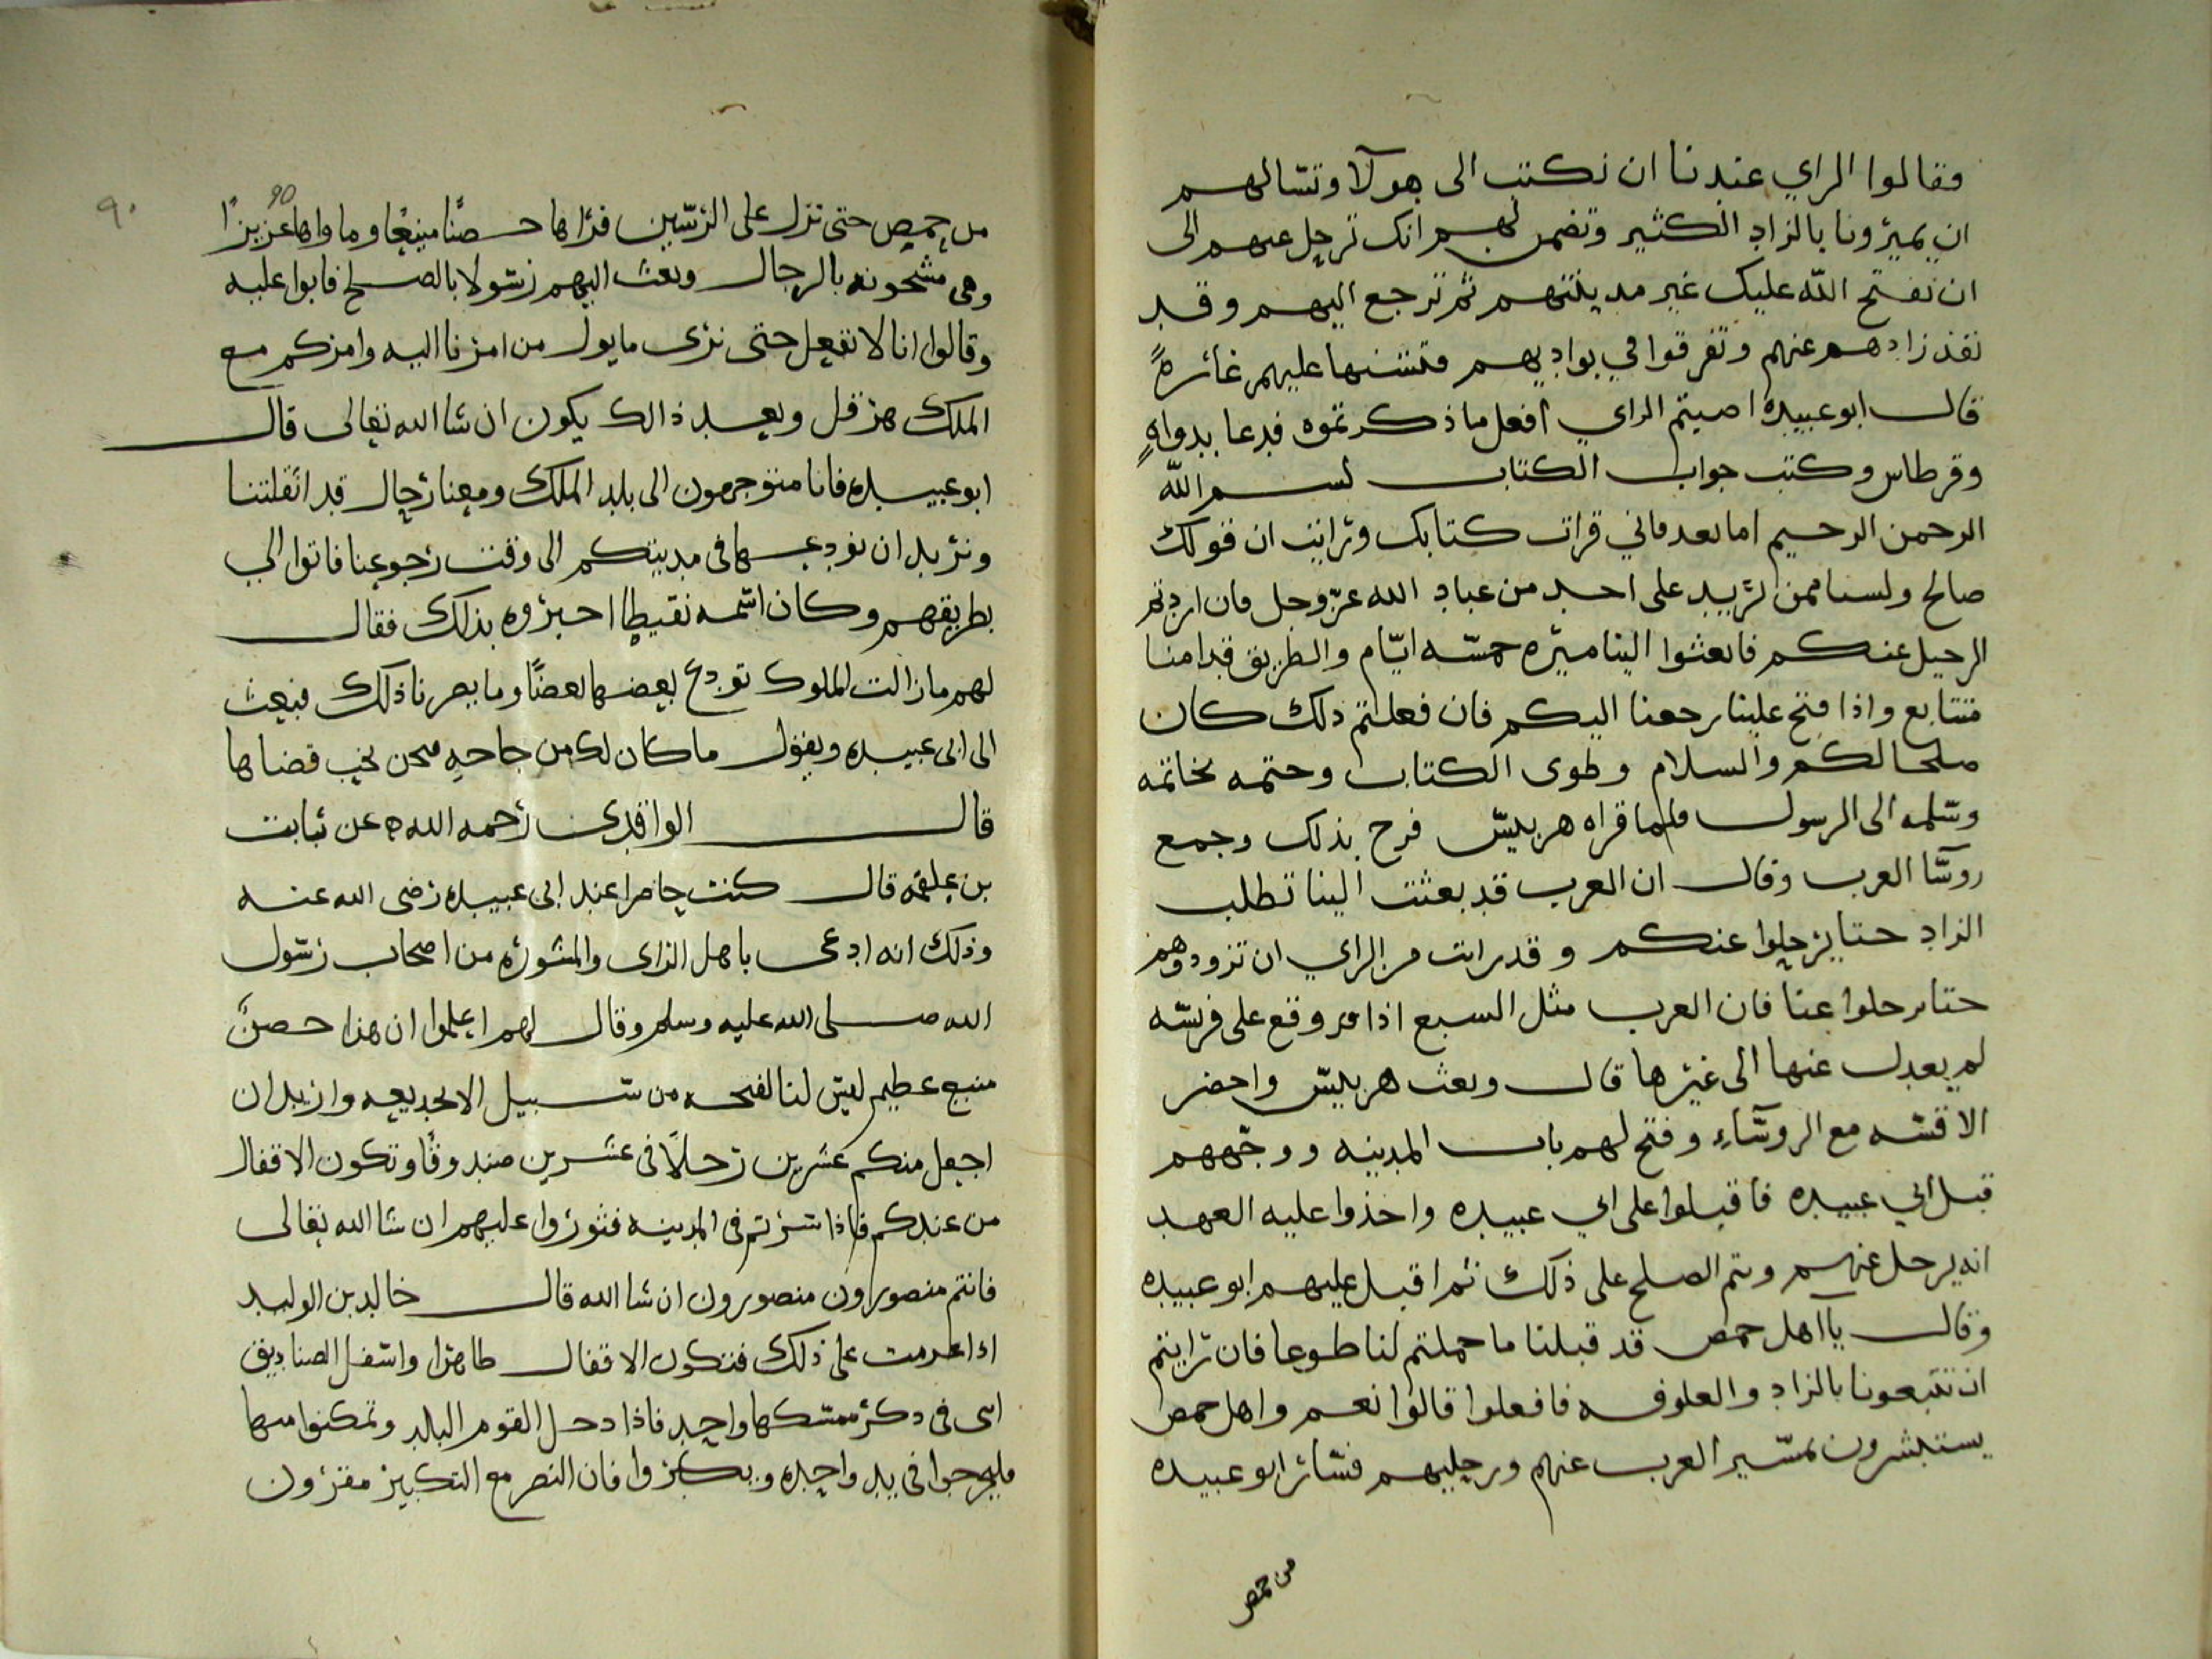 فقالوا الراي عندنا ان نكتب الى هولآ وتسالهم
ان يميرونا بالزاد الكثير وتضمن لهم انك ترحل عنهم الى
ان تفتح الله عليك غير مدينتهم ثم ترجع اليهم وقد
نفذ زادهم عنهم وتفرقوا في بواديهم فتشنها عليهم غائرةً
قال ابو عبيده اصبتم الراي افعل ما ذكرتموه فدعا بدواةٍ
وقرطاس وكتب جواب الكتاب بسم الله
الرحمن الرحيم اما بعد فاني قرات كتابك ورايت ان قولك
صالح ولسنا ممن يريد على احد من عباد الله عز وجل فان اردتم
الرحيل عنكم فابعثوا الينا ميره خمسه ايام والطريق قدامنا
متتابع واذا فتح علينا رجعنا اليكم فان فعلتم ذلك كان
صلحا لكم والسلام وطوى الكتاب وختمه بخاتمه
وسلمه الى الرسول فلما قراه هربيس فرح بذلك وجمع
روسا العرب وقال ان العرب قد بعثت الينا تطلب
الزاد حتا يرحلوا عنكم وقد رايت من الراي ان تزودوهم
حتا يرحلوا عنا فان العرب مثل السبع اذا وقع على فريسه
لم يعدل عنها الى غيرها قال وبعث هربيس واحضر
الاقسه مع الروسآء وفتح لهم باب المدينه ووجههم
قبل ابي عبيده فاقبلوا على ابي عبيده واخذوا عليه العهد
انه يرحل عنهم وتم الصلح على ذلك ثم اقبل عليهم ابو عبيده
وقال يا اهل حمص قد قبلنا ما حملتم لنا طوعا فان رايتم
ان تتبعونا بالزاد والعلوفه فافعلوا قالوا نعم واهل حمص
يستبشرون بمسير العرب عنهم ورحليهم فسار ابو عبيده
من حمص
٩٠
90
من حمص حتى نزل على الرستين فراها حصنًا منيعًا وماواها عزيزًا
وهي مشحونه بالرجال وبعث اليهم رسولا بالصلح فابوا عليه
وقالوا انا لا نفعل حتى نرى ما يول من امرنا اليه وامركم مع
الملك هرقل وبعد ذالك يكون ان شا الله تعالى قال
ابو عبيده فانا متوجهون الى بلد الملك ومعنا رحال قد اثقلتنا
ونريد ان نودعها في مدينتكم الى وقت رجوعنا فاتوا الي
بطريقهم وكان اسمه نقيطا اخبروه بذلك فقال
لهم ما زالت الملوك تودع بعضها بعضًا وما يضرنا ذلك فبعث
الى ابى عبيده ويقول ما كان لك من حاجه فنحن نجيب قضاها
قال الواقدى رحمه الله عن ثابت
بن علقمه قال كنت حاضرا عند ابى عبيده رضى الله عنه
وذلك انه ادعى باهل الراى والمشوره من اصحاب رسول
الله صلى الله عليه وسلم وقال لهم اعلموا ان هذا حصن
منيع عظيم ليس لنا لفتحه من سبيل الا بخديعه واريد ان
اجعل منكم عشرين رجلاً فى عشرين صندوقًا وتكون الاقفال
من عندكم فاذا سرتم فى المدينه فثوروا عليهم ان شا الله تعالى
فانتم منصورون منصورون ان شا الله قال خالد بن الوليد
اذا عزمت على ذلك فتكون الاقفال ظاهرا واسفل الصناديق
انثى فى دكر ممسكها واحد فاذا دخل القوم البلد وتمكنوا منها
فليخرجوا فى يد واحده ويكبروا فان النصر مع التكبير مقرون